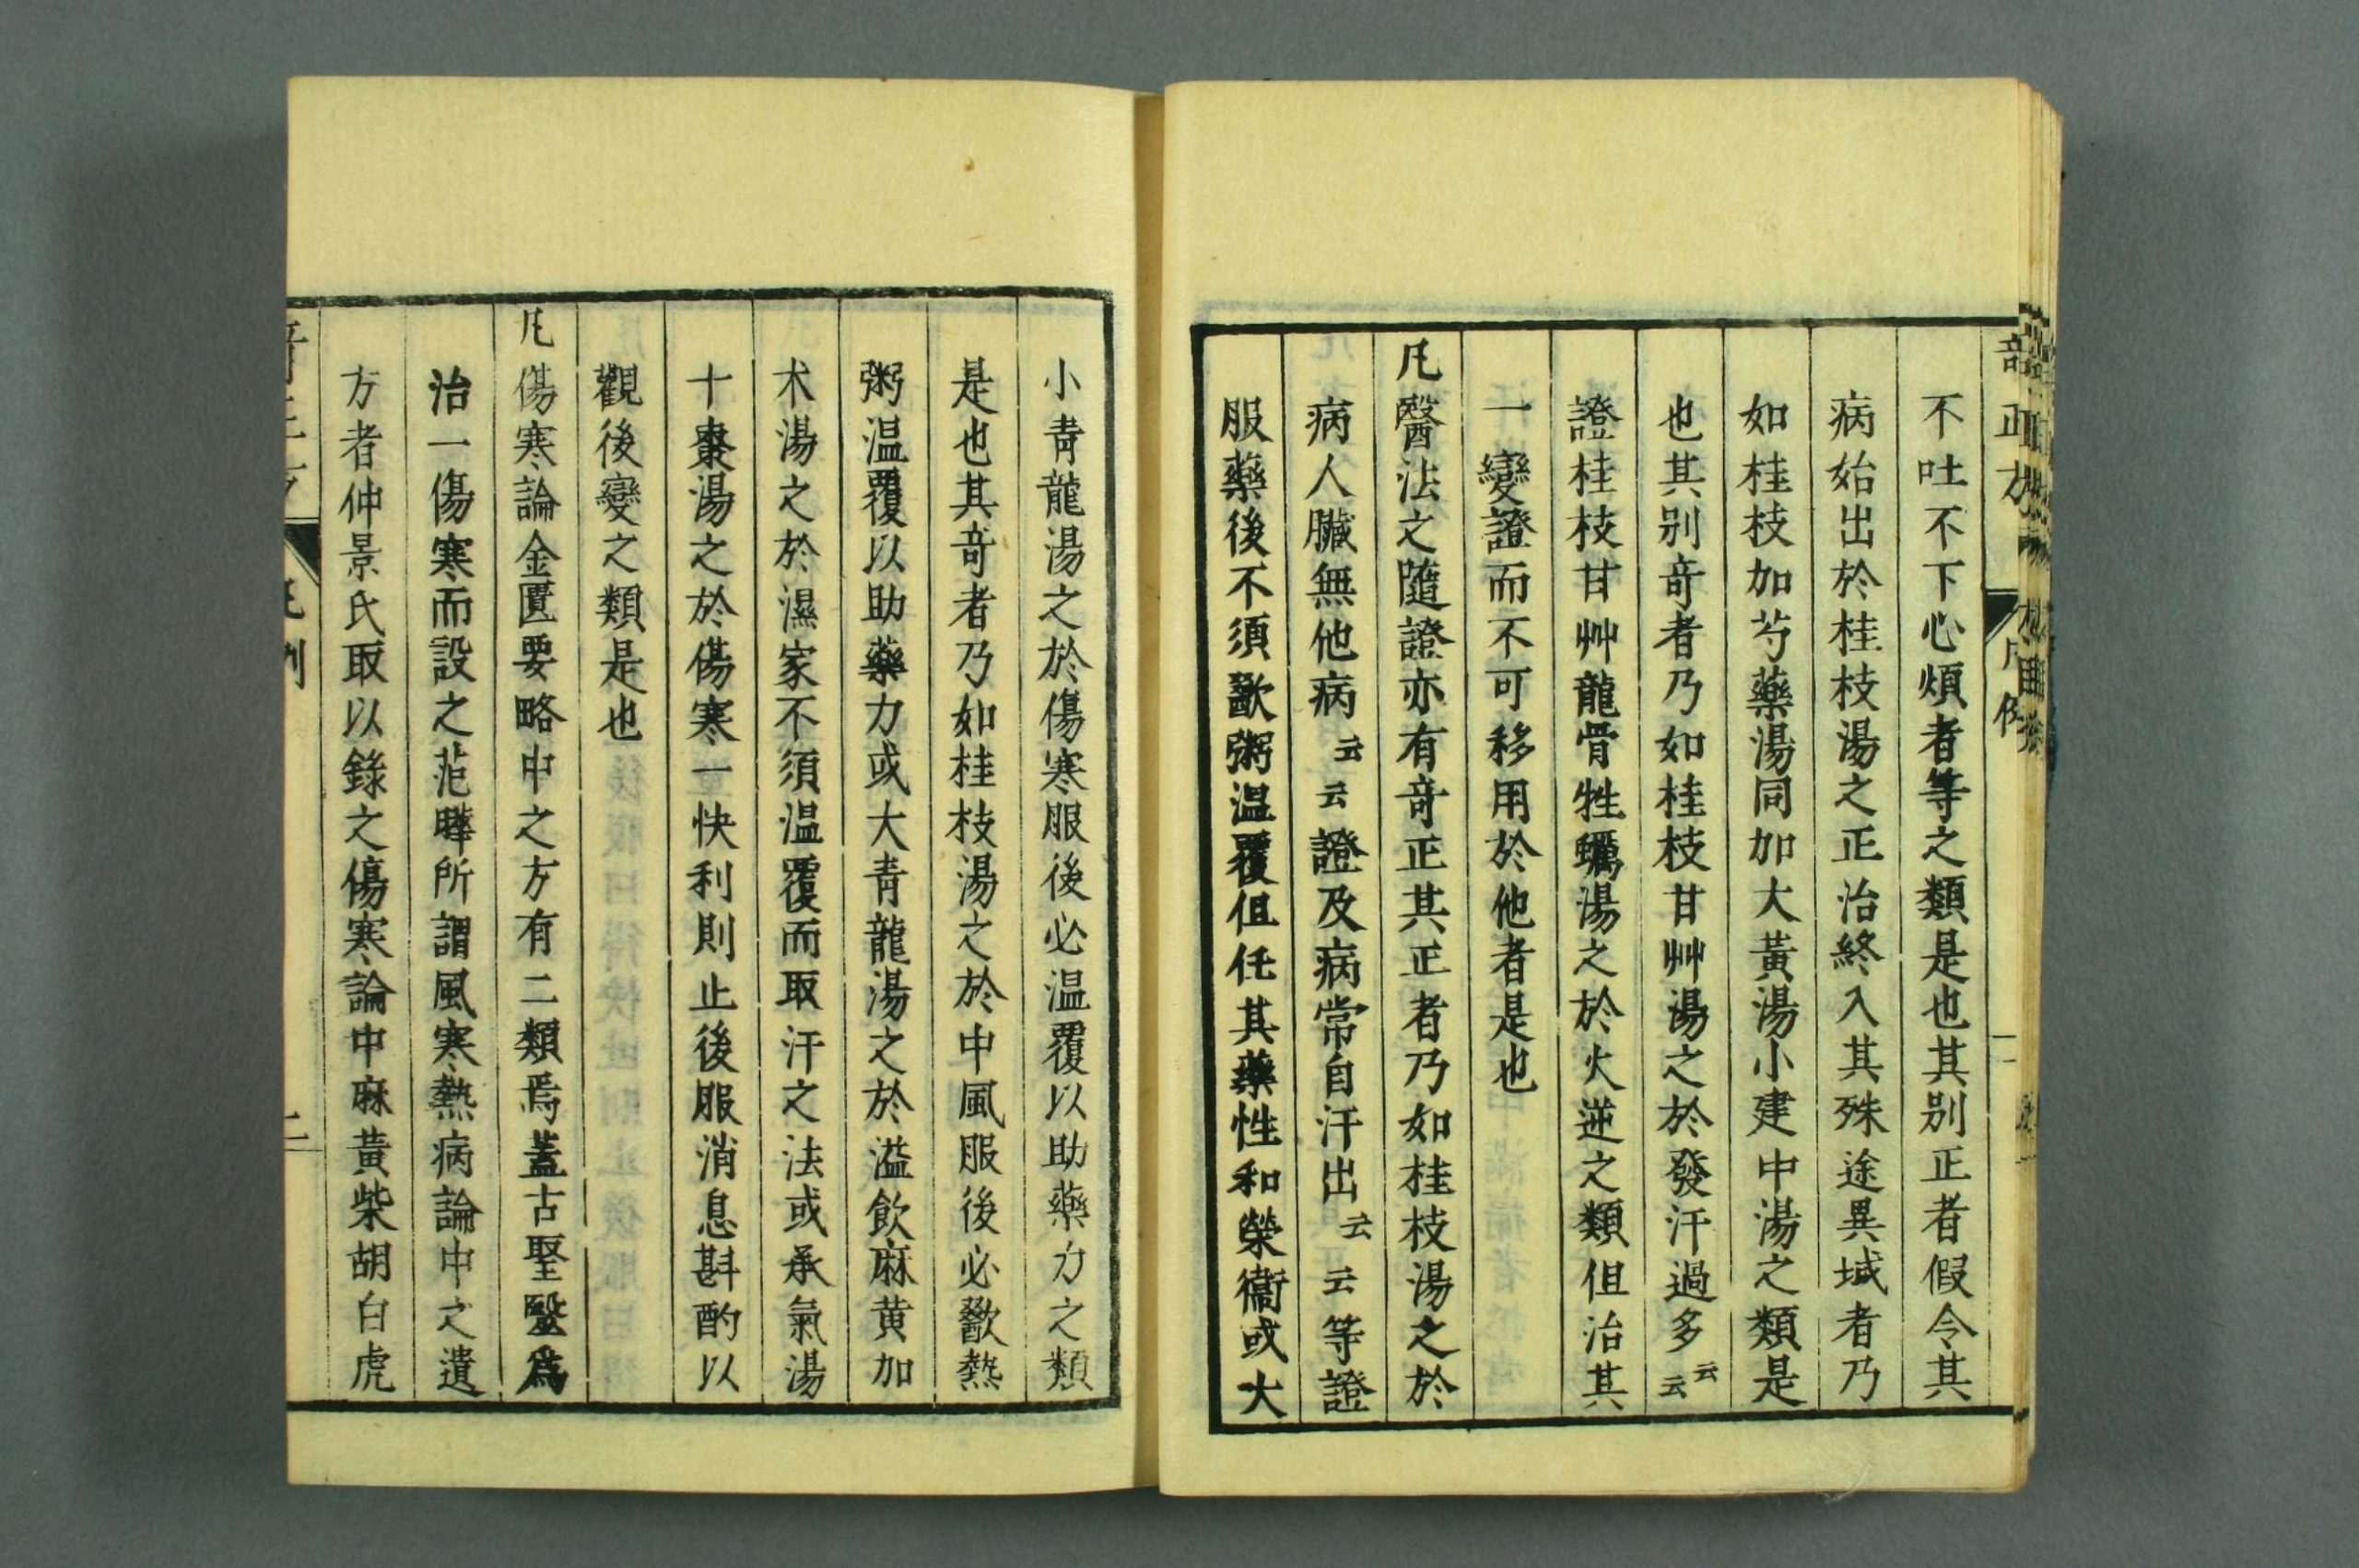 不吐不下心煩者等之類是也其別正者假令其
病始出於桂枝湯之正治終入其殊途異域者乃
如桂枝加芍藥湯同加大黃湯小建中湯之類是
也其別竒者乃如桂枝甘艸湯之於發汗過多云云
證桂枝甘艸龍骨牡蠣湯之於火逆之類但治其
一變證而不可移用於他者是也
凡醫法之隨證亦有竒正其正者乃如桂枝湯之於
病人臟無他病云云證及病常自汗出云云等證
服藥後不須歠粥溫覆但任其藥性和榮衞或大
小青龍湯之於傷寒服後必溫覆以助藥力之類
是也其竒者乃如桂枝湯之於中風服後必歠熱
粥溫覆以助藥力或大青龍湯之於溢飲麻黄加
朮湯之於濕家不須溫覆而取汗之法或承氣湯
十棗湯之於傷寒一快利則止後服消息斟酌以
觀後變之類是也
凡傷寒論金匱要略中之方有二類焉蓋古聖毉爲
治一傷寒而設之范曄所謂風寒熱病論中之遺
方者仲景氏取以錄之傷寒論中麻黄柴胡白虎